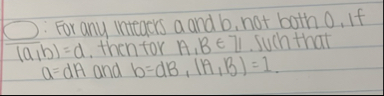 : For any integers a and b, not both 0, if
(a,b)=d, then for A,B ∈ ℤ such that
a=dA and b=dB, (A,B)=1.